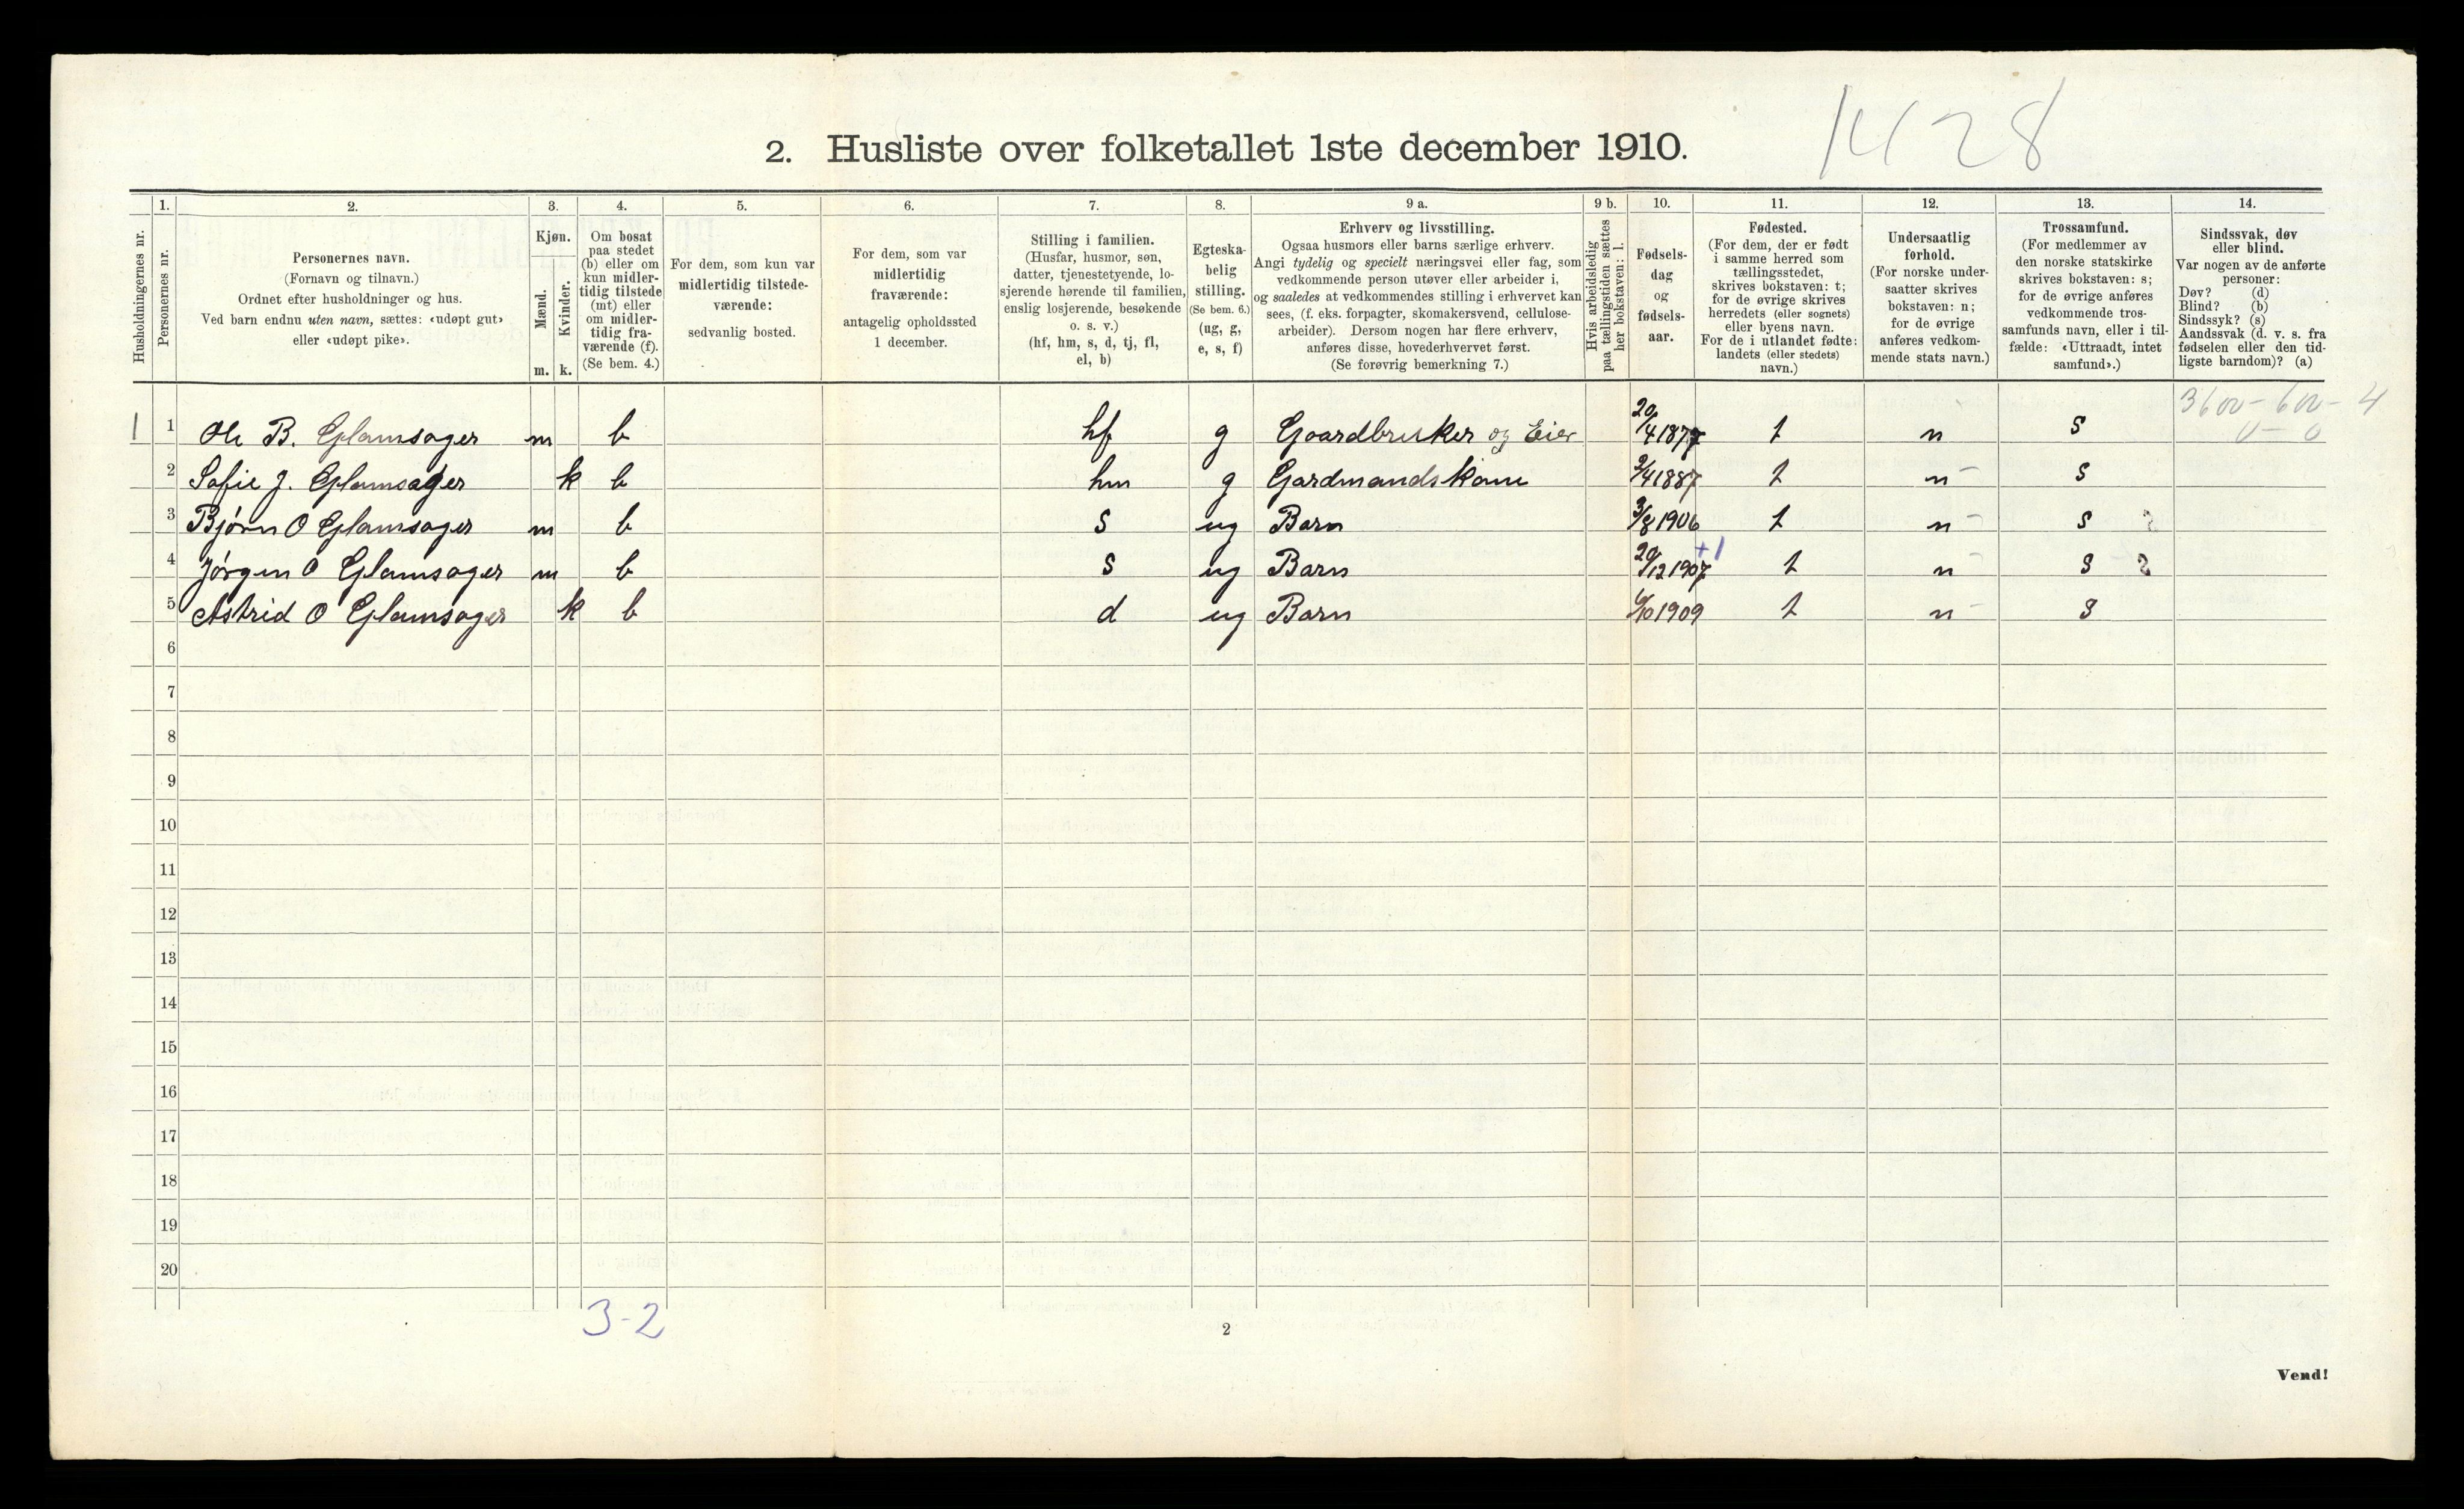 1428
2. Husliste over folketallet 1ste december 1910.
1. 2. 3. 4. 5. 6. 7. 8. 9 a. 9 b. 10. 11. 12. 13. 14.
Husholdningernes nr.
Personernes nr.
Personernes navn.
(Fornavn og tilnavn.)
Ordnet efter husholdninger og hus.
Ved barn endnu uten navn, sættes: «udøpt gut»
eller «udøpt pike».
Kjøn.
Mænd.
Kvinder.
m. k.
Om bosat
paa stedet
(b) eller om
kun midler-
tidig tilstede
(mt) eller
om midler-
tidig fra-
værende (f).
(Se bem. 4.)
For dem, som kun var
midlertidig tilstede-
værende:
sedvanlig bosted.
For dem, som var
midlertidig
fraværende:
antagelig opholdssted
1 december.
Stilling i familien.
(Husfar, husmor, søn,
datter, tjenestetyende, lo-
sjerende hørende til familien,
enslig losjerende, besøkende
o. s. v.)
(hf, hm, s, d, tj, fl,
el, b)
Egteska-
belig
stilling.
(Se bem. 6.)
(ug, g,
e, s, f)
Erhverv og livsstilling.
Ogsaa husmors eller barns særlige erhverv.
Angi tydelig og specielt næringsvei eller fag, som
vedkommende person utøver eller arbeider i,
og saaledes at vedkommendes stilling i erhvervet kan
sees, (f. eks. forpagter, skomakersvend, cellulose-
arbeider). Dersom nogen har flere erhverv,
anføres disse, hovederhvervet først.
(Se forøvrig bemerkning 7.)
Hvis arbeidsledig
paa tællingstiden sættes
her bokstaven: l.
Fødsels-
dag
og
fødsels-
aar.
Fødested.
(For dem, der er født
i samme herred som
tællingsstedet,
skrives bokstaven: t;
for de øvrige skrives
herredets (eller sognets)
eller byens navn.
For de i utlandet fødte:
landets (eller stedets)
navn.)
Undersaatlig
forhold.
(For norske under-
saatter skrives
bokstaven: n;
for de øvrige
anføres vedkom-
mende stats navn.)
Trossamfund.
(For medlemmer av
den norske statskirke
skrives bokstaven: s;
for de øvrige anføres
vedkommende tros-
samfunds navn, eller i til-
fælde: «Uttraadt, intet
samfund».)
Sindssvak, døv
eller blind.
Var nogen av de anførte
personer:
Døv? (d)
Blind? (b)
Sindssyk? (s)
Aandssvak (d. v. s. fra
fødselen eller den tid-
ligste barndom)? (a)
3600 - 600 - 4
0 - 0
1 1 Ole B. Glamsager m b hf g Gaardbruker og Eier 20/4 1877 t n s
2 Sofie J. Glamsager k b hm g Gardmandskone 2/4 1887 t n s
3 Bjørn O Glamsager m b s ug Barn 3/8 1906 t n s
+1
4 Jørgen O Glamsager m b s ug Barn 20/12 1907 t n s
5 Astrid O Glamsager k b d ug Barn 6/10 1909 t n s
6
7
8
9
10
11
12
13
14
15
16
17
18
19
20
3-2
2
Vend!